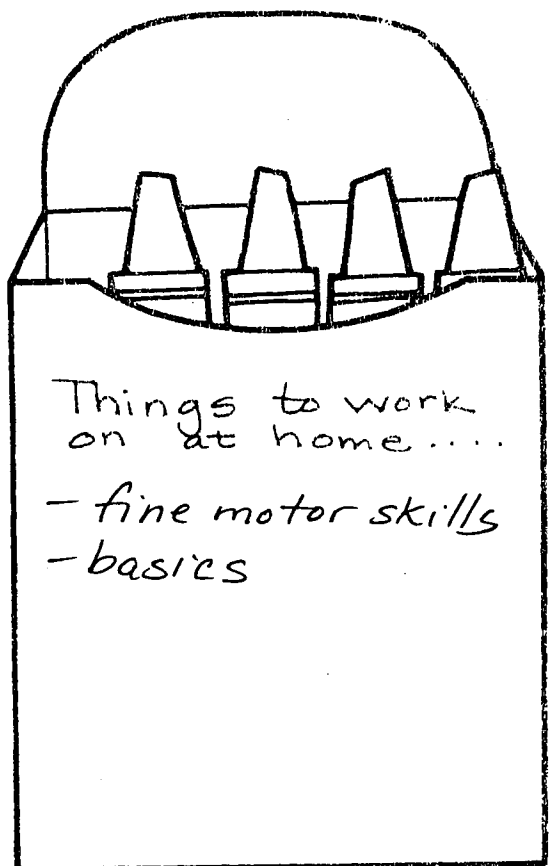 Things to work
on at home....
- fine motor skills
- basics